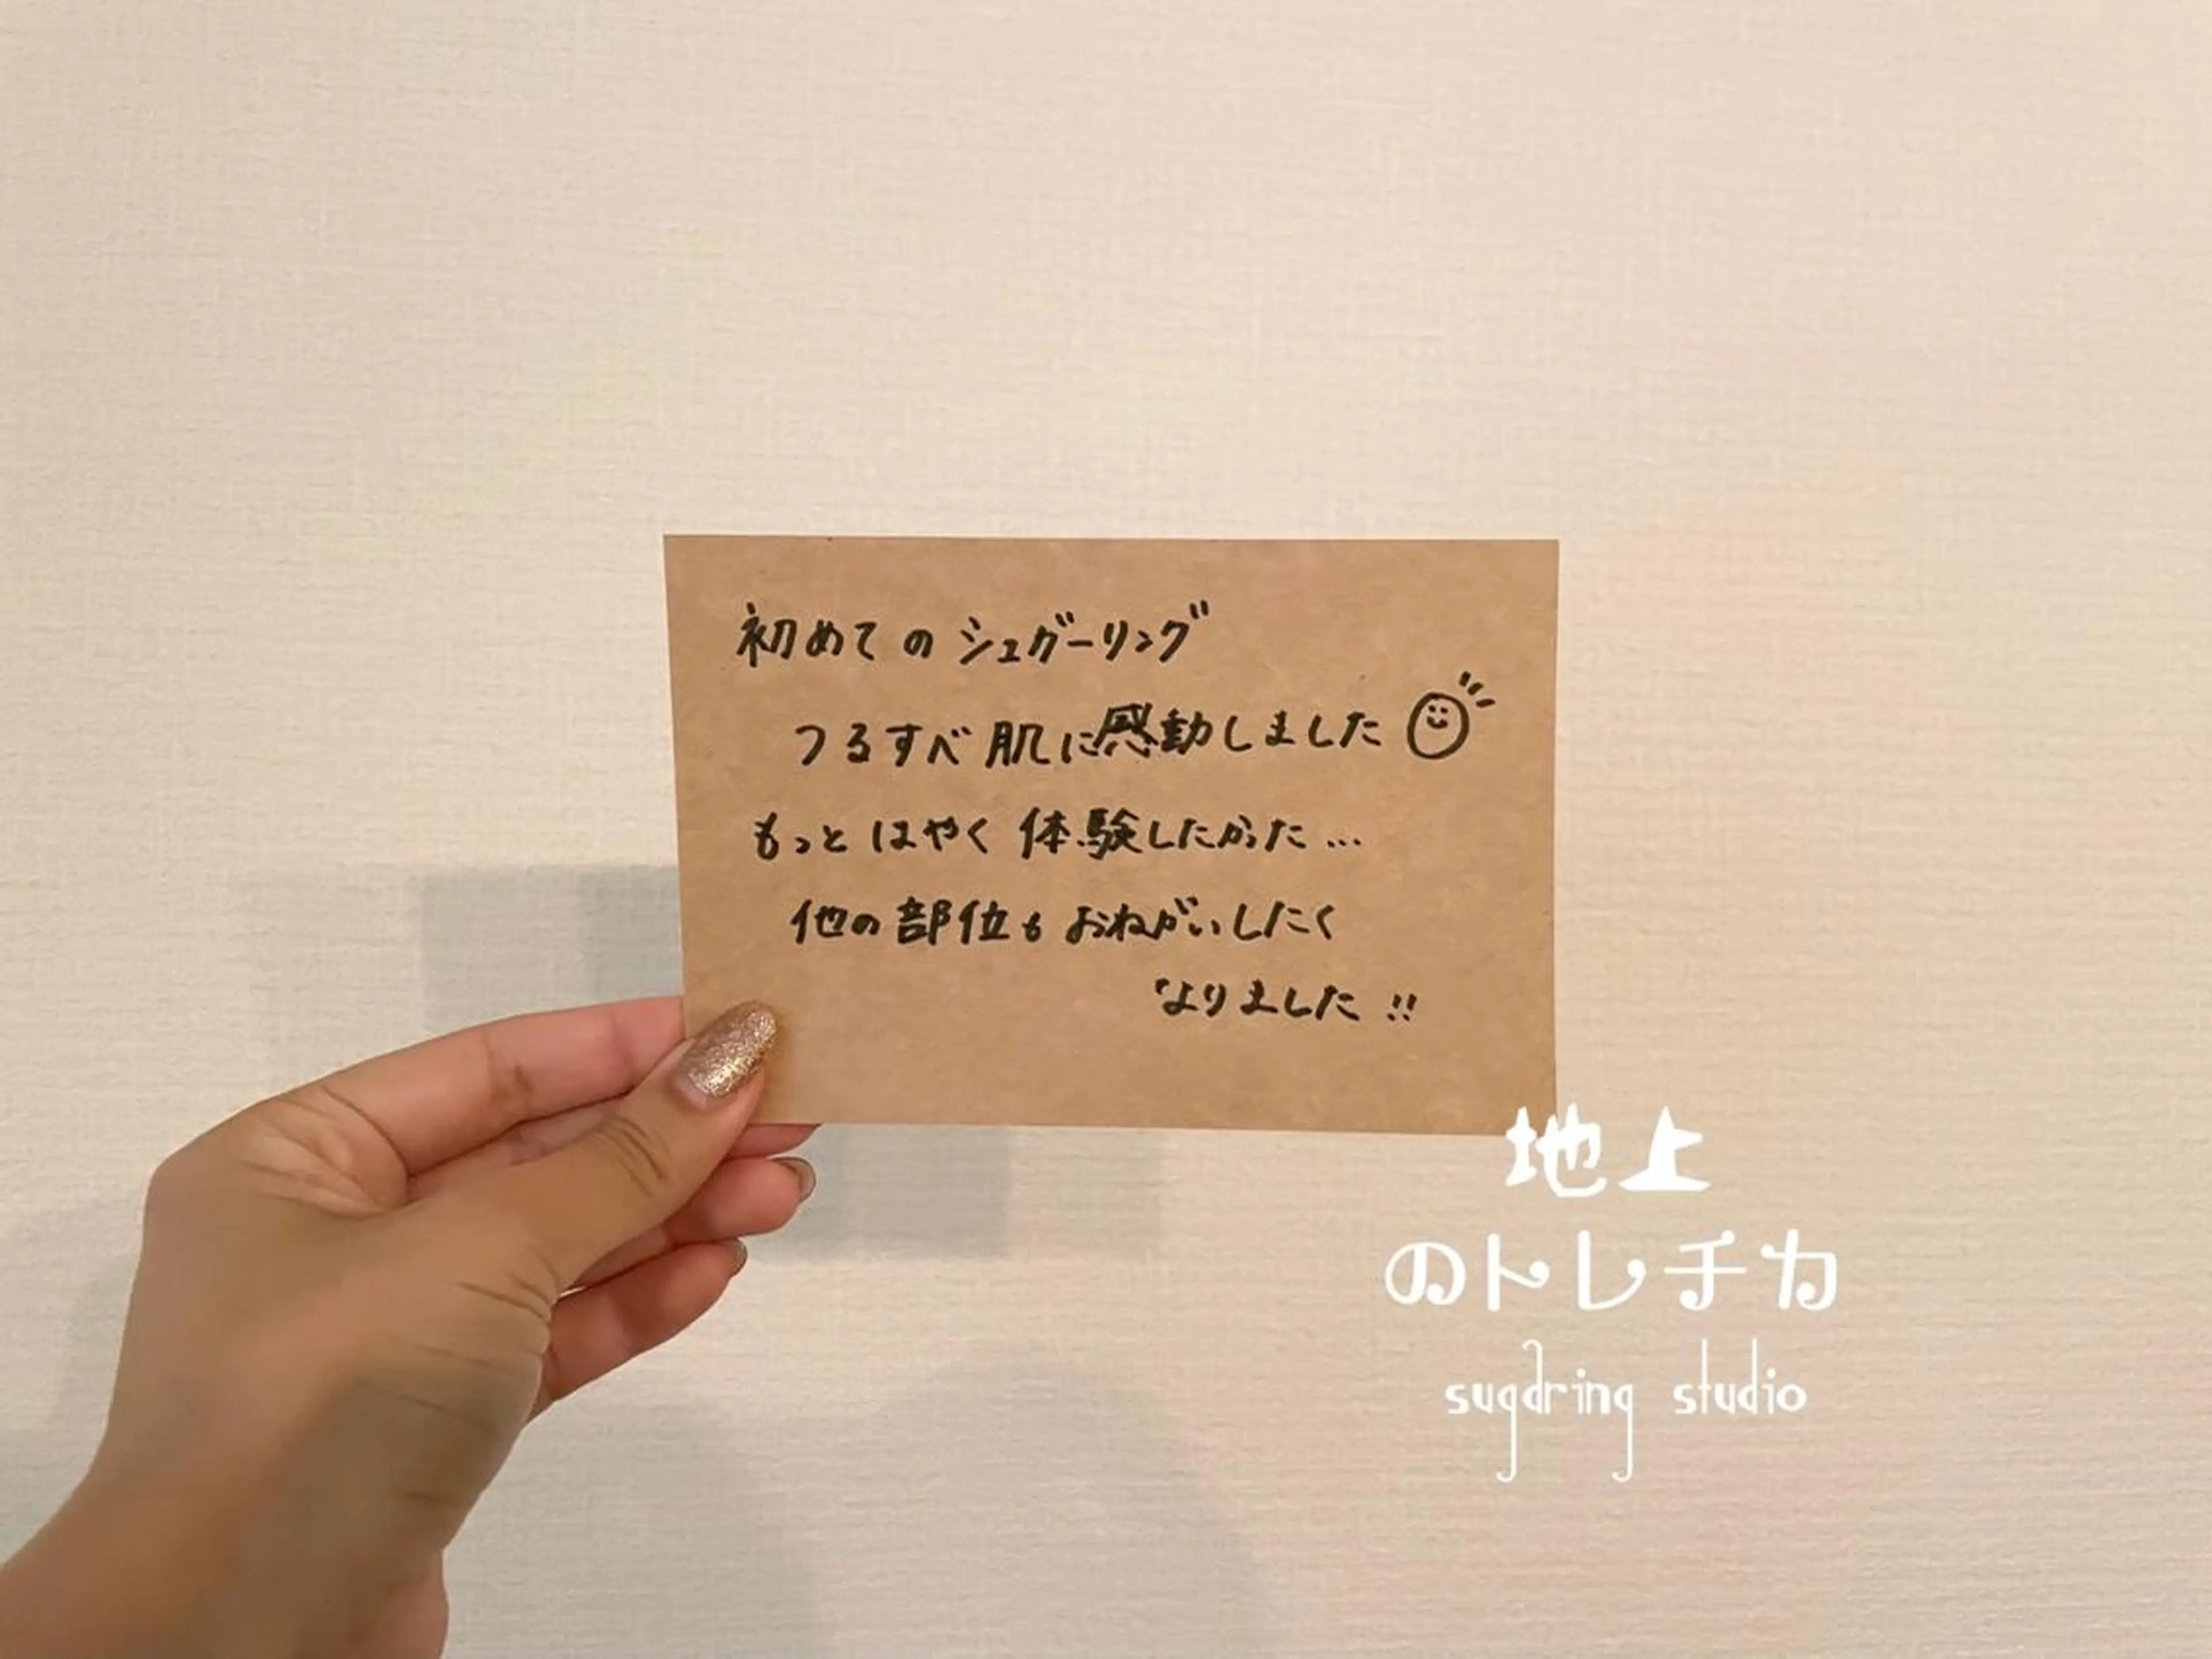 初めてのシュガーリング
つるすべ肌に感動しました
もっとはやく体験したかった…
他の部位もおねがいしたく
なりました!!
地上
のトレチカ
sugaring studio